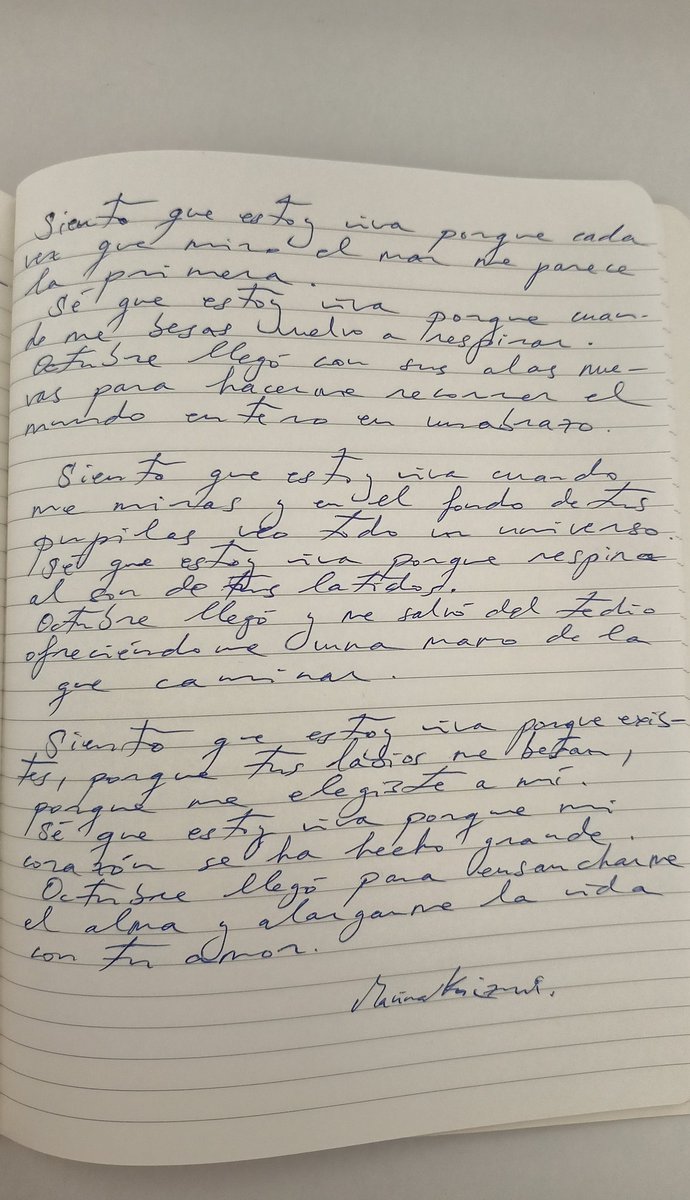 Siento que estoy viva porque cada
vez que miro el mar me parece
la primera.
Sé que estoy viva porque cuan-
do me besas vuelvo a respirar.
Octubre llegó con sus alas nue-
vas para hacerme recorrer el
mundo entero en un abrazo.
Siento que estoy viva cuando
me miras y en el fondo de tus
pupilas veo todo un universo.
Sé que estoy viva porque respiro
al son de tus latidos.
Octubre llegó y me salvó del tedio
ofreciéndome una mano de la
que caminar.
Siento que estoy viva porque exis-
tes, porque tus labios me besan,
porque me elegiste a mí.
Sé que estoy viva porque mi
corazón se ha hecho grande.
Octubre llegó para ensancharme
el alma y alargarme la vida
con tu amor.